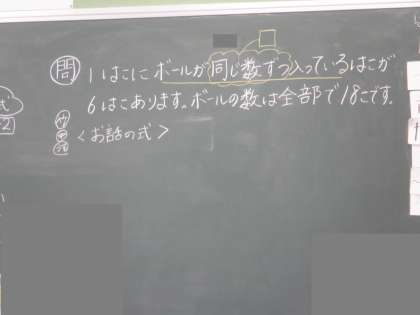 問 1はこに ボールが同じ数ずつ入っているはこが
6はこあります。ボールの数は全部で18こです。
<お話の式>
式
2